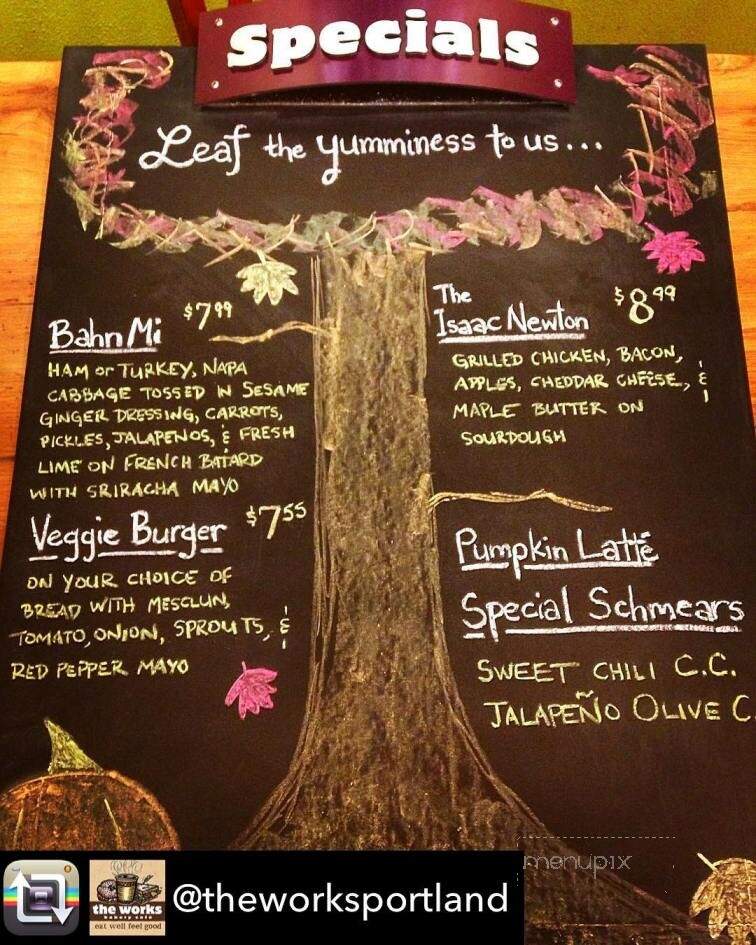 Specials
Leaf the yumminess to us...
Bahn Mi $7.99
HAM or TURKEY, NAPA
CABBAGE TOSSED IN SESAME
GINGER DRESSING, CARROTS,
PICKLES, JALAPENOS, & FRESH
LIME ON FRENCH BATARD
WITH SRIRACHA MAYO
Veggie Burger $7.55
ON YOUR CHOICE OF
BREAD WITH MESCLUN,
TOMATO, ONION, SPROUTS, &
RED PEPPER MAYO
The
Isaac Newton $8.99
GRILLED CHICKEN, BACON,
APPLES, CHEDDAR CHEESE, &
MAPLE BUTTER ON
SOURDOUGH
Pumpkin Latté
Special Schmears
SWEET CHILI C.C.
JALAPEÑO OLIVE C
menupix
the works
bakery cafe
eat well feel good
@theworksportland